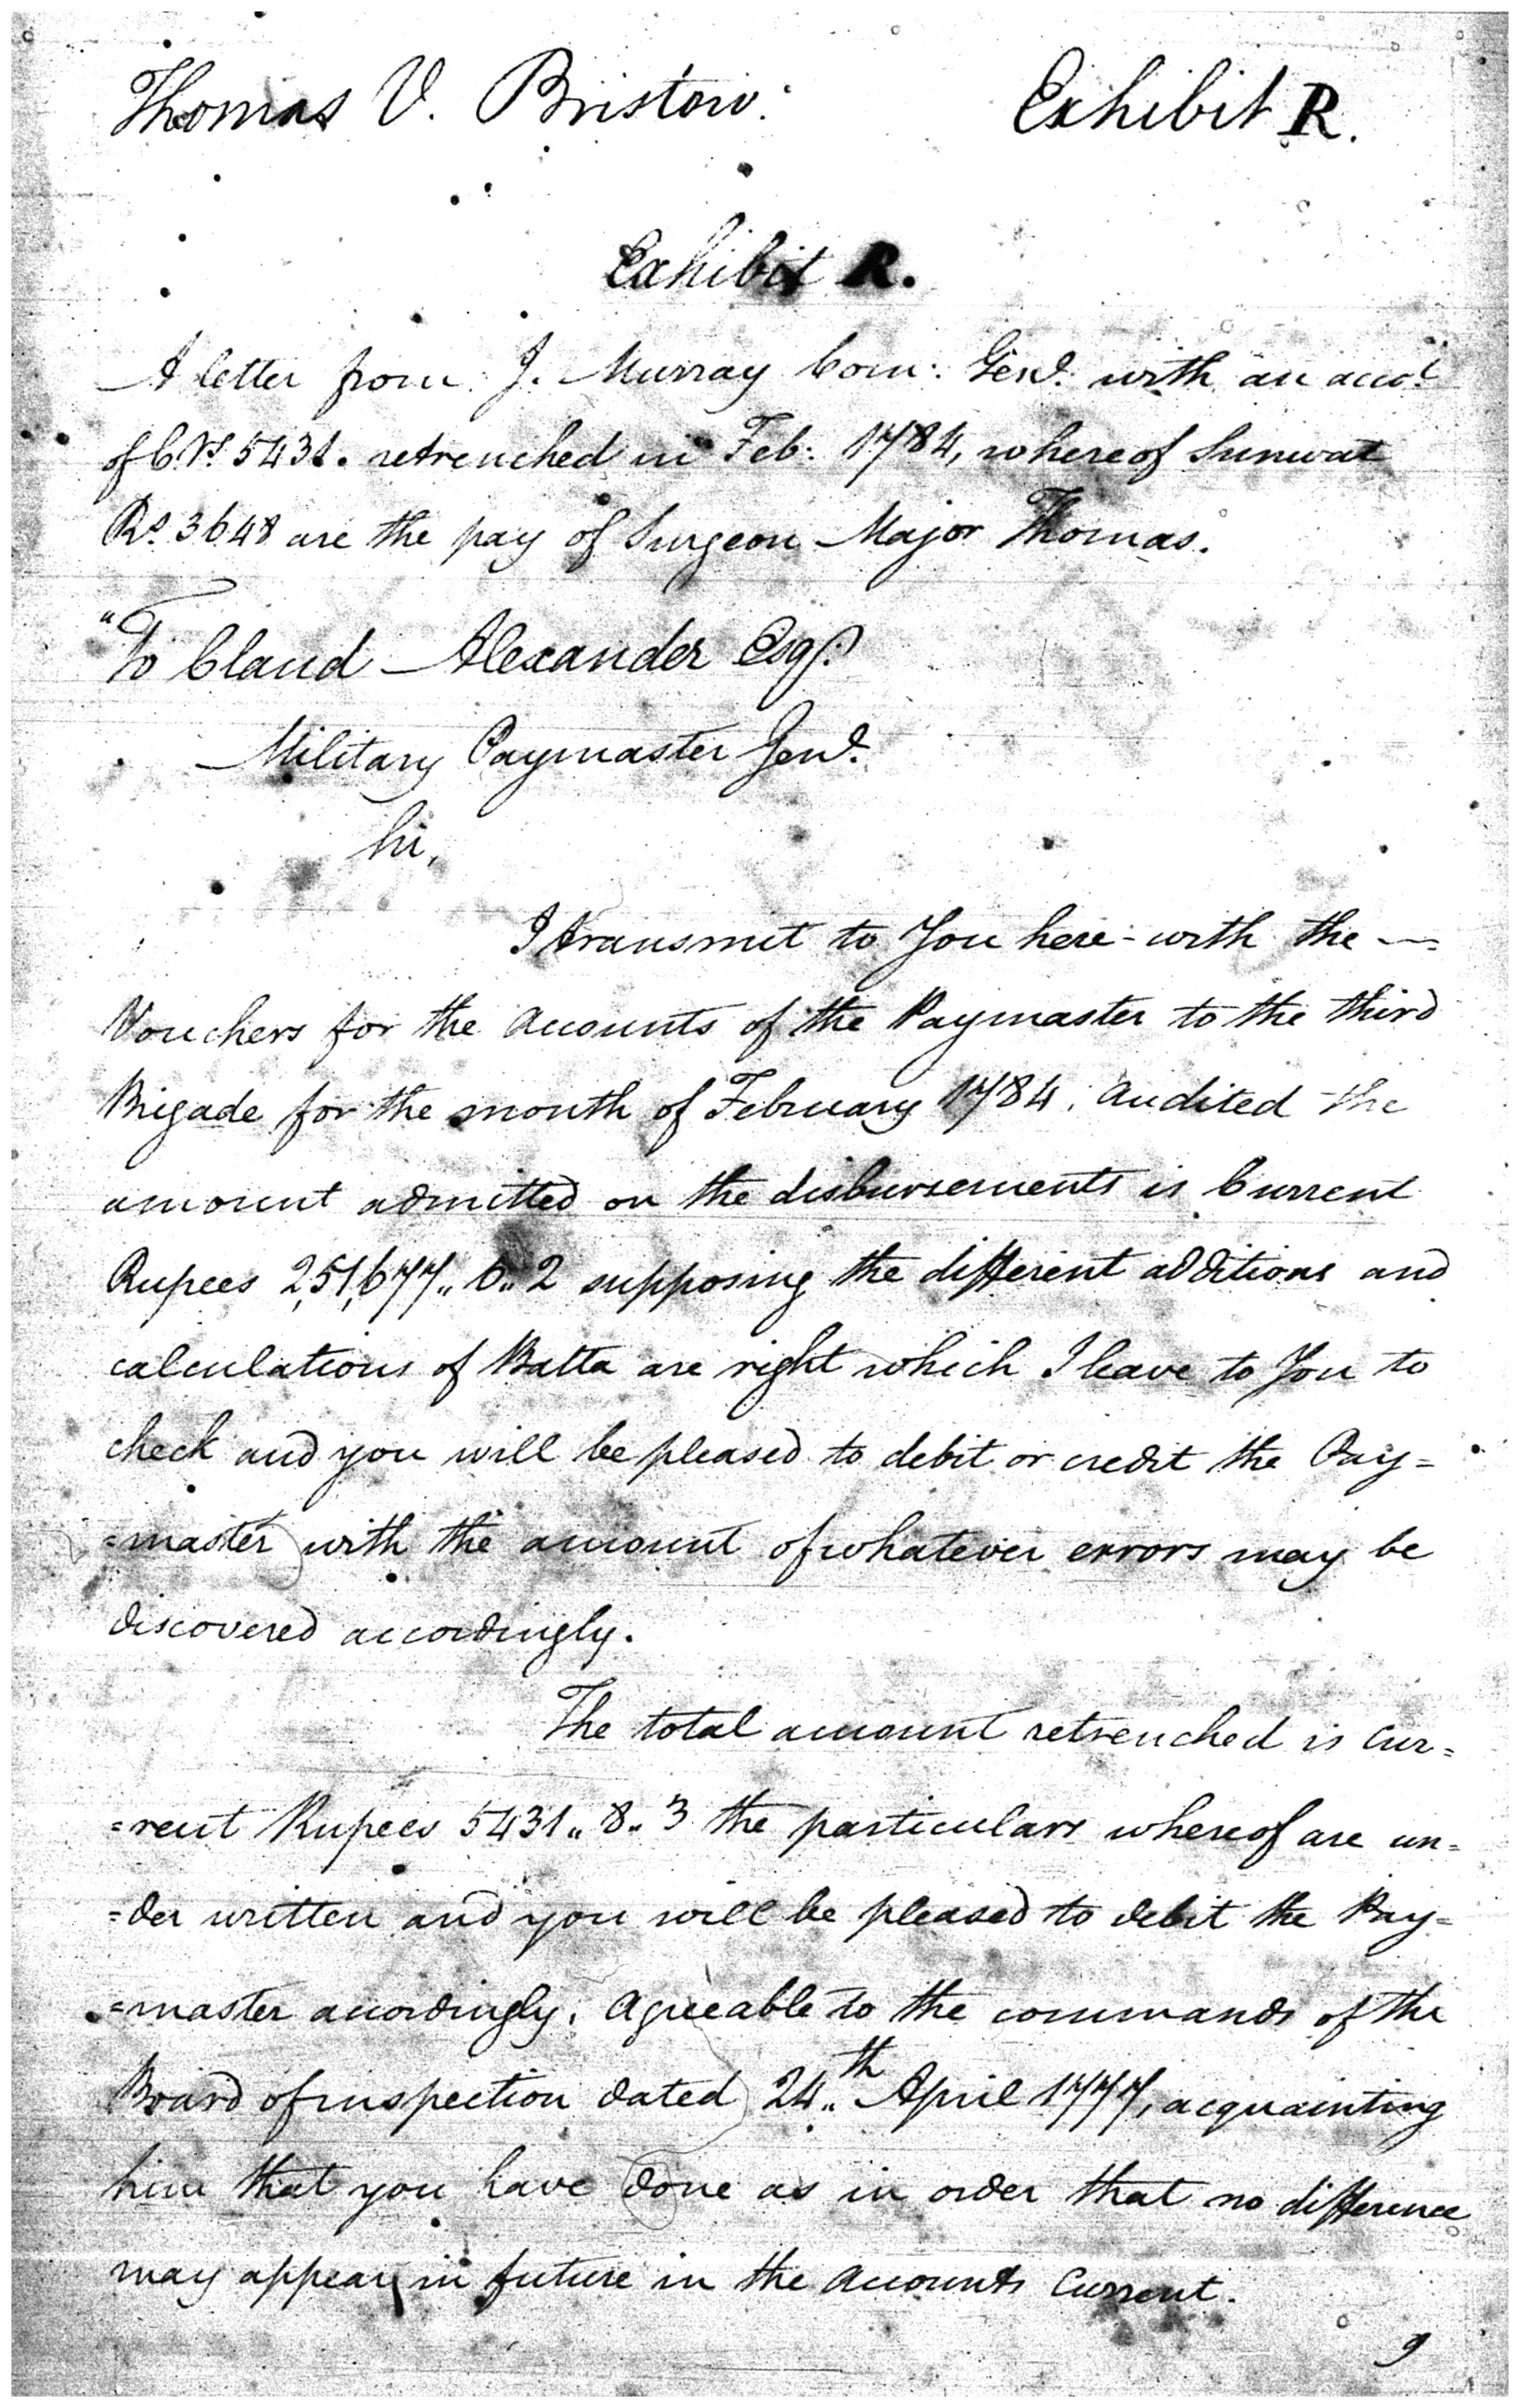 Thomas V. Bristow. Exhibit R.
Exhibit R.
A letter from J. Murray Com: Genl. with an acct.
of C.Rs. 5431. retrenched in Feb: 1784, whereof Sunwat
Rs. 3648 are the pay of Surgeon Major Thomas.
"To Claud Alexander Esqr.
Military Paymaster Genl.
Sir,
I transmit to You here-with the
Vouchers for the Accounts of the Paymaster to the third
Brigade for the month of February 1784. Audited the
amount admitted on the disbursements is Current
Rupees 2,51,677.. 6.. 2 supposing the different additions and
calculations of Batta are right which I leave to You to
check and you will be pleased to debit or credit the Pay=
=master with the amount of whatever errors may be
discovered accordingly.
The total amount retrenched is Cur=
=rent Rupees 5431.. 8.. 3 the particulars whereof are un=
=der written and you will be pleased to debit the Pay=
=master accordingly. Agreeable to the commands of the
Board of inspection dated 24..th April 1777, acquainting
him that you have done as in order that no difference
may appear in future in the Accounts Current.